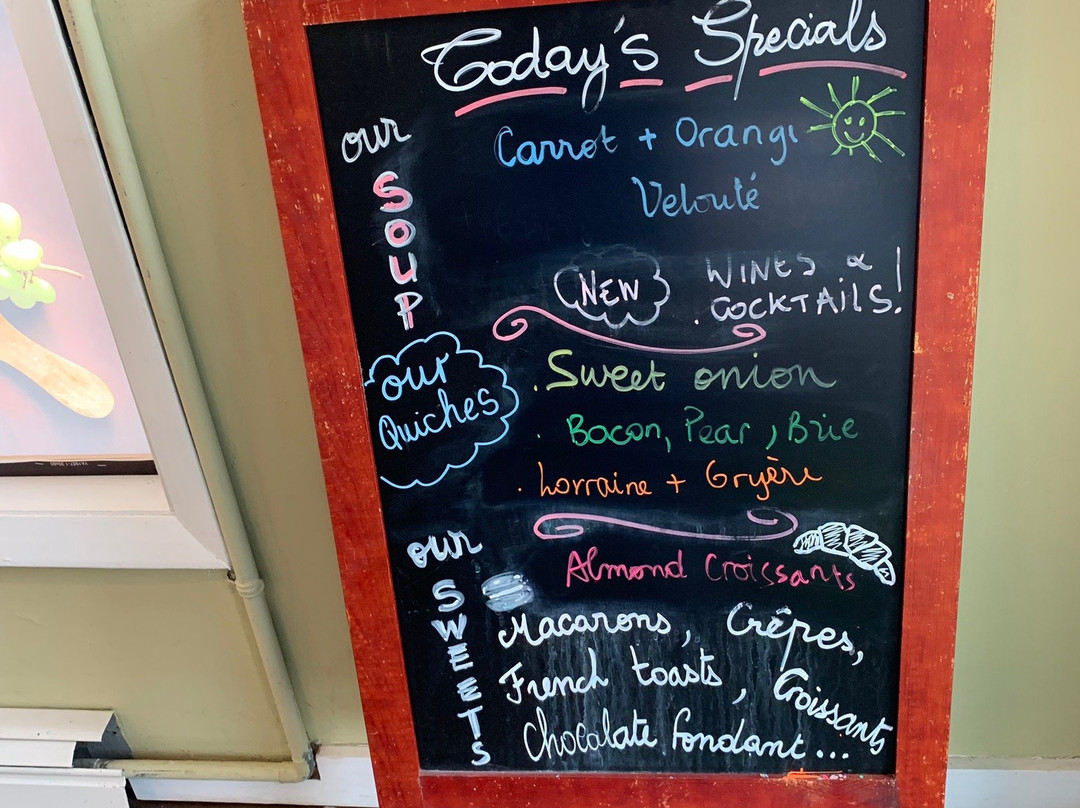 Today's Specials
our
SOUP
Carrot + Orange
Velouté
NEW
WINES &
COCKTAILS!
our
Quiches
. Sweet onion
. Bacon, Pear, Brie
. Lorraine + Gryère
our
SWEETS
Almond Croissants
Macarons, Crêpes,
French toasts, Croissants
Chocolate fondant...